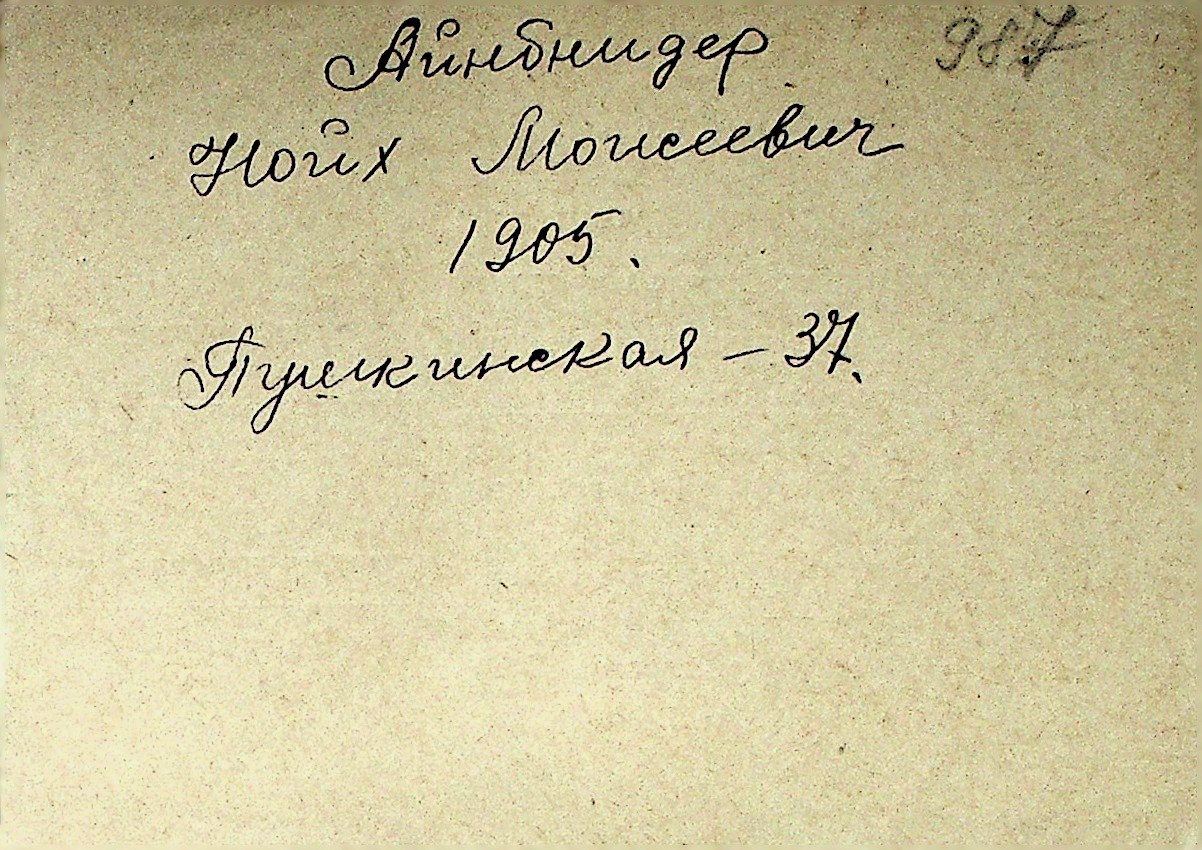 Айнбиндер 987
Нойх Моисеевич
1905.
Пушкинская – 37.